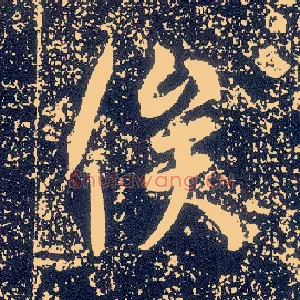 俟
Shufawang.cn